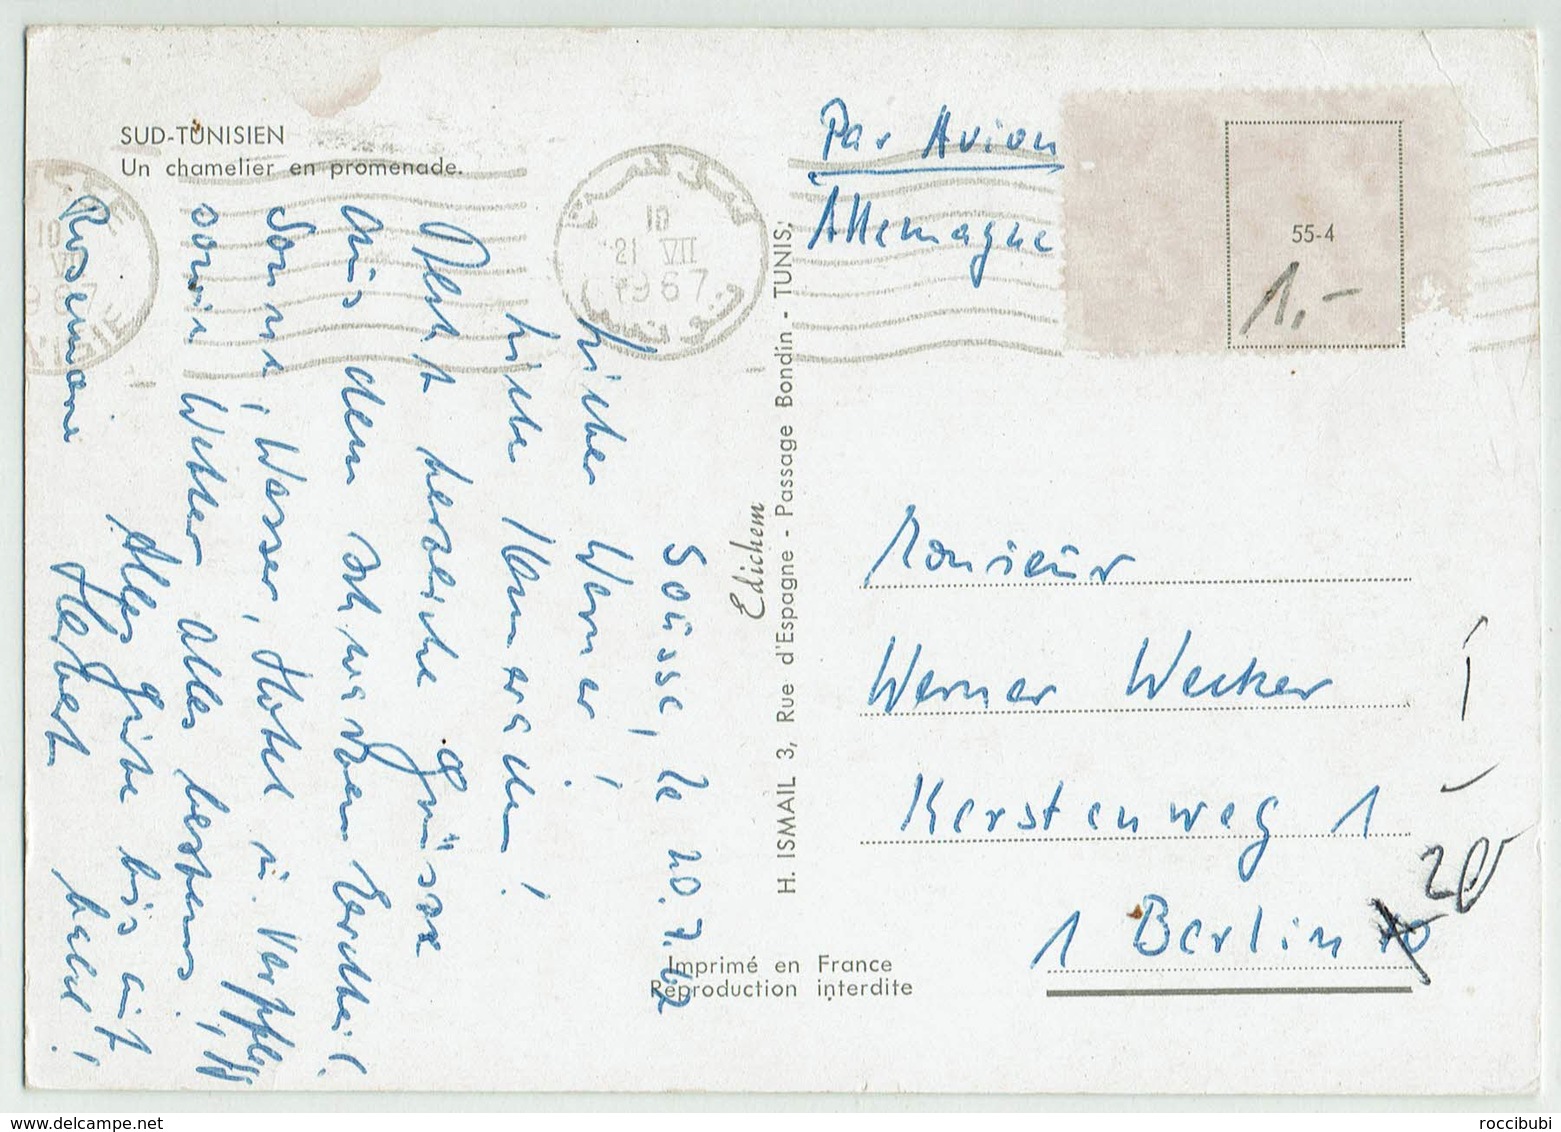 SUD-TUNISIEN
Un chamelier en promenade.
10
21 VII
1967
Par Avion
Allemagne
55-4
1,-
Sousse, le 20.7.67
Lieber Werner!
Liebe Kameraden!
Herzliche Grüsse
aus dem schwarzen Erdteil.
Sonne, Wasser, Hotel u. Verpfleg
sowie Wetter alles bestens,
Alles Gute bis auf
bald!
Rosemarie Herbert
Edichem
H. ISMAIL 3, Rue d'Espagne - Passage Bondin - TUNIS.
Monsieur
Werner Wecker
Kerstenweg 1
1 Berlin
20
Imprimé en France
Reproduction interdite
roccibubi